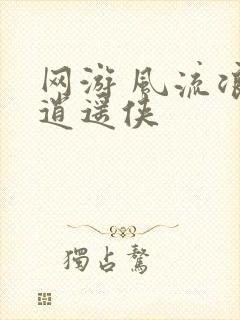 网游风流浪
逍遥侠
獨占鰲